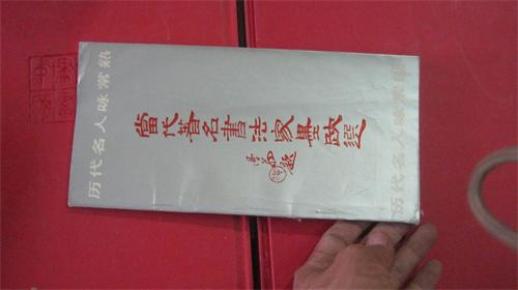 历代名人咏常熟
當代著名書法家墨跡選
历代名人咏常熟